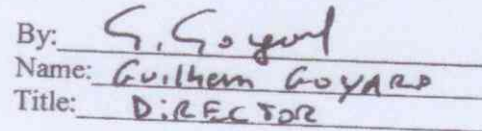 By: G. Goyard
Name: Guilhem GOYARD
Title: DiRECTOR